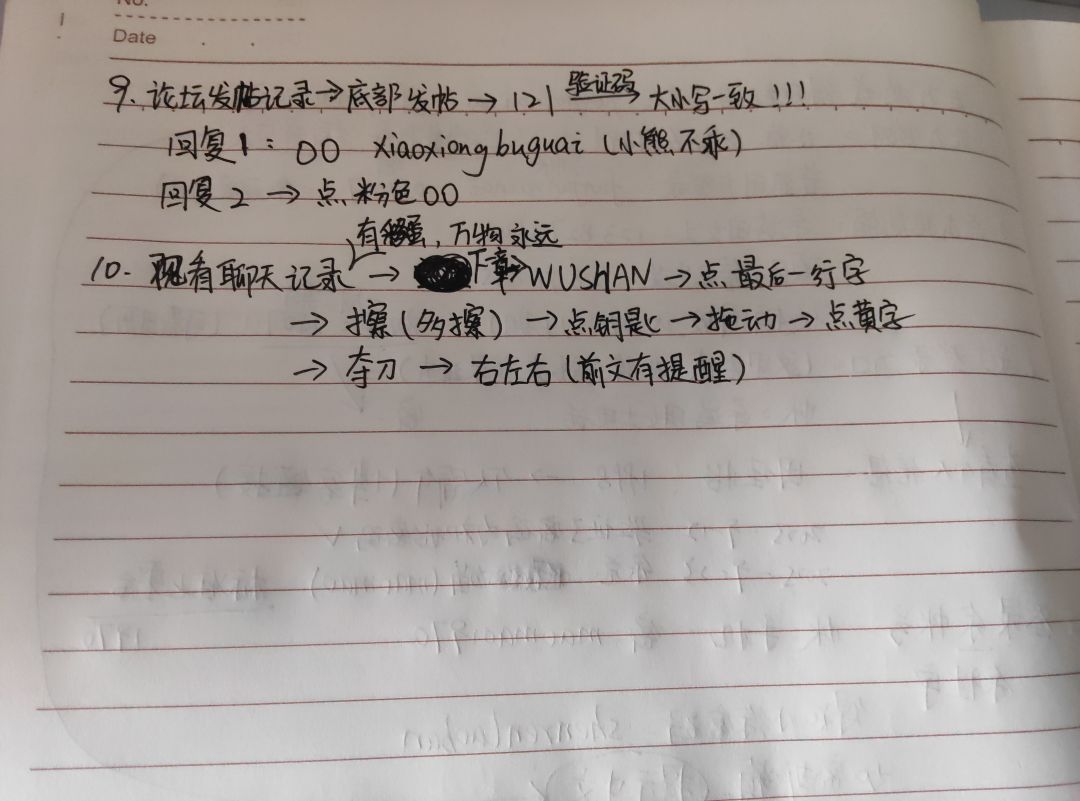 No.
Date
9. 论坛发帖记录→底部发帖→121 验证码→ 大小写一致!!!
回复1: OO xiaoxiongbuguai (小熊不乖)
回复2 → 点粉色OO
有 , 万物永远
10. 观看聊天记录 → 下章→WUSHAN→点最后一行字
→ 擦(多擦) →点钥匙→拖动→点黄字
→ 夺刀 → 右左右(前文有提醒)